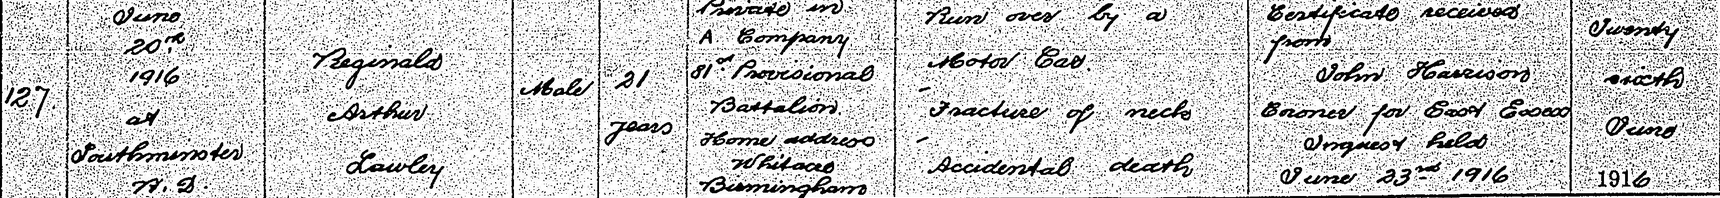 127.
June
20th
1916
at
Southminster
R. D.
Reginald
Arthur
Lawley
Male
21
years
Private in
A Company
81st Provisional
Battalion
Home address
Whitacre
Birmingham
Run over by a
Motor Car.
- Fracture of neck
- Accidental death
Certificate received
from
John Harrison
Coroner for East Essex
Inquest held
June 23rd 1916
Twenty
sixth
June
1916